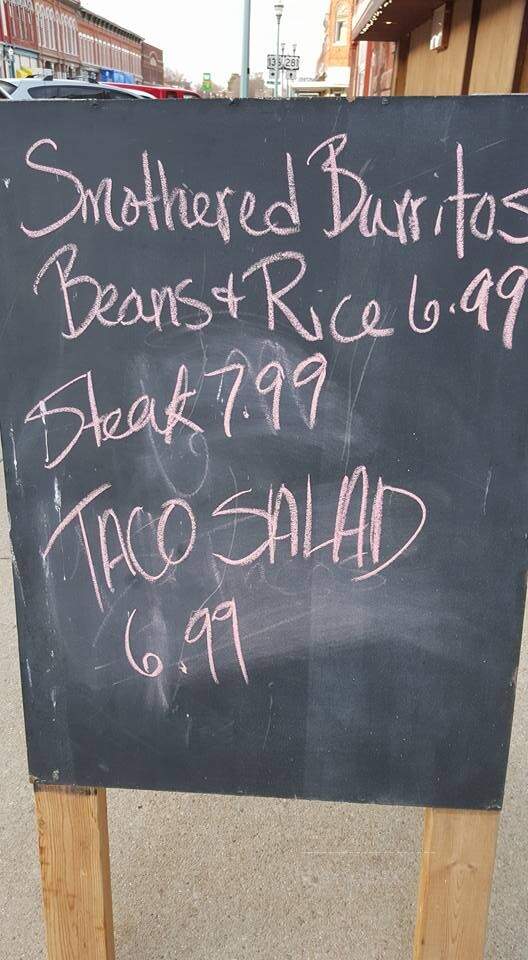 Smothered Burritos
Beans & Rice 6.99
Steak 7.99
TACO SALAD
6.99